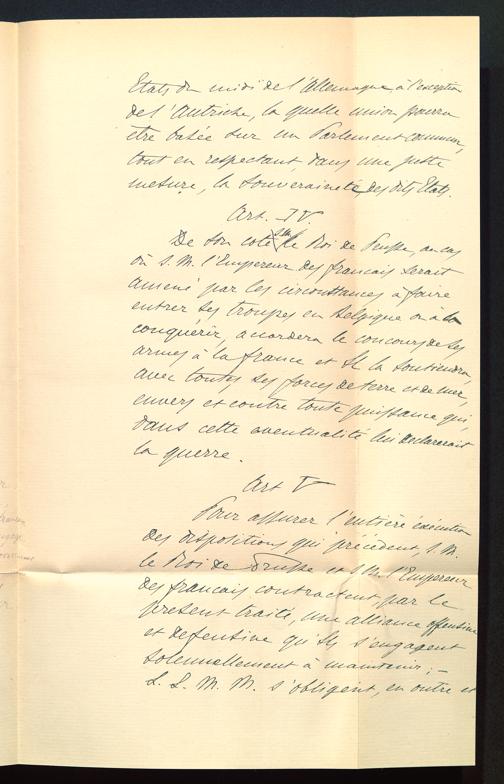 Etats du midi de l'Allemagne, à l'exception
de l'Autriche, la quelle union pourra
etre basée sur un Parlement commun,
tout en respectant, dans une juste
mesure, la souveraineté des dits Etats.
Art. IV.
De son coté, S.M. le Roi de Prusse, au cas
où S. M. l'Empereur des francais serait
amené par les circonstances à faire
entrer ses troupes en Belgique ou à la
conquérir, accordera le concours de ses
armes à la france et Il la soutiendra
avec toutes ses forces de terre et de mer,
envers et contre toute puissance qui,
dans cette eventualité lui declarerait
la guerre.
Art V
Pour assurer l'entière éxécution
des dispositions qui précèdent, S. M.
le Roi de Prusse et S. M. l'Empereur
des francais contractent, par le
présent traité, une alliance offensive
et defensive qu'Ils s'engagent
solennellement à maintenir; –
L. L. M. M. s'obligent, en outre et